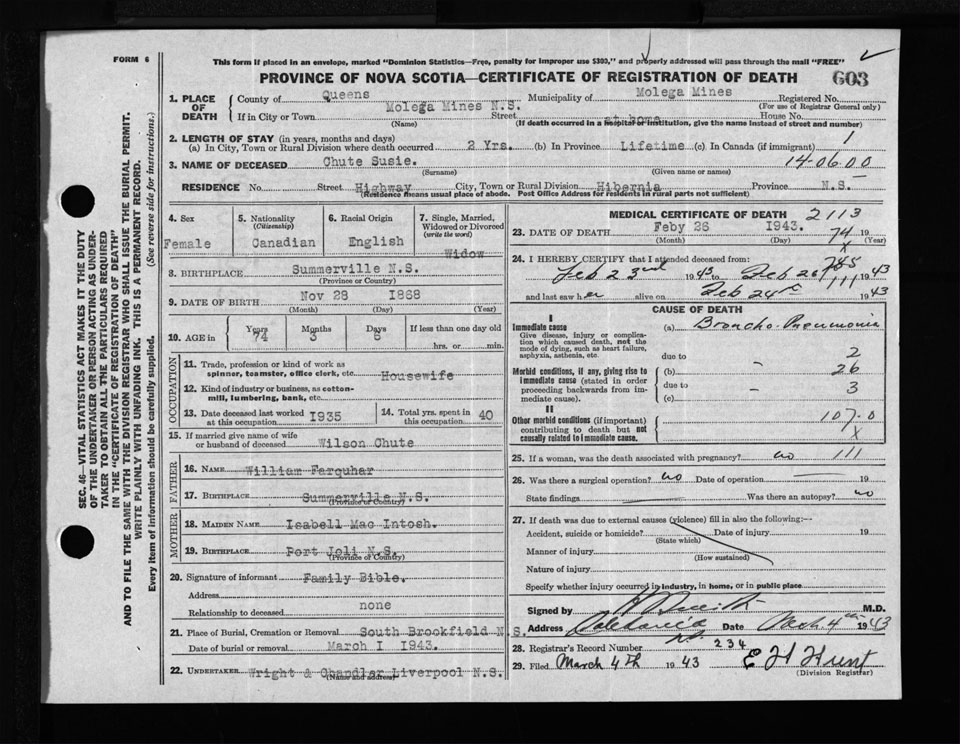 FORM 6
This form if placed in an envelope, marked "Dominion Statistics—Free, penalty for improper use $300," and properly addressed will pass through the mail "FREE"
PROVINCE OF NOVA SCOTIA—CERTIFICATE OF REGISTRATION OF DEATH 603
SEC. 46—VITAL STATISTICS ACT MAKES IT THE DUTY
OF THE UNDERTAKER OR PERSON ACTING AS UNDER-
TAKER TO OBTAIN ALL THE PARTICULARS REQUIRED
IN THE "CERTIFICATE OF REGISTRATION OF DEATH"
AND TO FILE THE SAME WITH THE DIVISION REGISTRAR WHO SHALL ISSUE THE BURIAL PERMIT.
WRITE PLAINLY WITH UNFADING INK. THIS IS A PERMANENT RECORD.
Every item of information should be carefully supplied. (See reverse side for instructions.)
1. PLACE OF DEATH
County of Queens Municipality of Molega Mines Registered No.
(For use of Registrar General only)
If in City or Town Molega Mines N.S. Street at home House No.
(Name) (If death occurred in a hospital or institution, give the name instead of street and number)
2. LENGTH OF STAY (in years, months and days)
(a) In City, Town or Rural Division where death occurred 2 Yrs. (b) In Province Lifetime (c) In Canada (if immigrant) 1
3. NAME OF DECEASED Chute Susie. 14-06.00
(Surname) (Given name or names)
RESIDENCE No. Street Highway City, Town or Rural Division Hibernia Province N.S.
(Residence means usual place of abode. Post Office Address for residents in rural parts not sufficient)
4. Sex Female
5. Nationality (Citizenship) Canadian
6. Racial Origin English
7. Single, Married, Widowed or Divorced (write the word) Widow
8. BIRTHPLACE Summerville N.S.
(Province or Country)
9. DATE OF BIRTH Nov 28 1868
(Month) (Day) (Year)
10. AGE in Years 74 Months 3 Days If less than one day old hrs. or min.
OCCUPATION
11. Trade, profession or kind of work as
spinner, teamster, office clerk, etc. Housewife
12. Kind of industry or business, as cotton-
mill, lumbering, bank, etc.
13. Date deceased last worked at this occupation 1935
14. Total yrs. spent in this occupation 40
15. If married give name of wife
or husband of deceased Wilson Chute
FATHER
16. NAME William Farquhar
17. BIRTHPLACE Summerville N.S.
(Province or Country)
MOTHER
18. MAIDEN NAME Isabell Mac Intosh.
19. BIRTHPLACE Port Joli N.S.
(Province or Country)
20. Signature of informant Family Bible.
Address
Relationship to deceased none
21. Place of Burial, Cremation or Removal South Brookfield N.S.
Date of burial or removal March I 1943.
22. UNDERTAKER Wright & Chandler Liverpool N.S.
(Name and address)
MEDICAL CERTIFICATE OF DEATH 2113
23. DATE OF DEATH Feby 26 1943. 19
(Month) (Day) (Year)
74
x
24. I HEREBY CERTIFY that I attended deceased from:
Feb 23rd 1943 to Feb 26 1943
111
and last saw her alive on Feb 24 1943
CAUSE OF DEATH
I
Immediate cause
Give disease, injury or complica-
tion which caused death, not the
mode of dying, such as heart failure,
asphyxia, asthenia, etc.
(a) Broncho-Pneumonia
due to 2
Morbid conditions, if any, giving rise to
immediate cause (stated in order
proceeding backwards from im-
mediate cause).
(b) – 26
due to – 3
(c)
II
Other morbid conditions (if important)
contributing to death but not
causally related to immediate cause.
107.0
x
25. If a woman, was the death associated with pregnancy? no 111
26. Was there a surgical operation? no Date of operation — 19
State findings Was there an autopsy? no
27. If death was due to external causes (violence) fill in also the following:—
Accident, suicide or homicide? Date of injury 19
(State which)
Manner of injury
(How sustained)
Nature of injury
Specify whether injury occurred in industry, in home, or in public place
Signed by M.D.
Address Caledonia Date Mch. 4th 1943
N.S.
28. Registrar's Record Number 234
29. Filed March 4th 1943 E H Hunt
(Division Registrar)